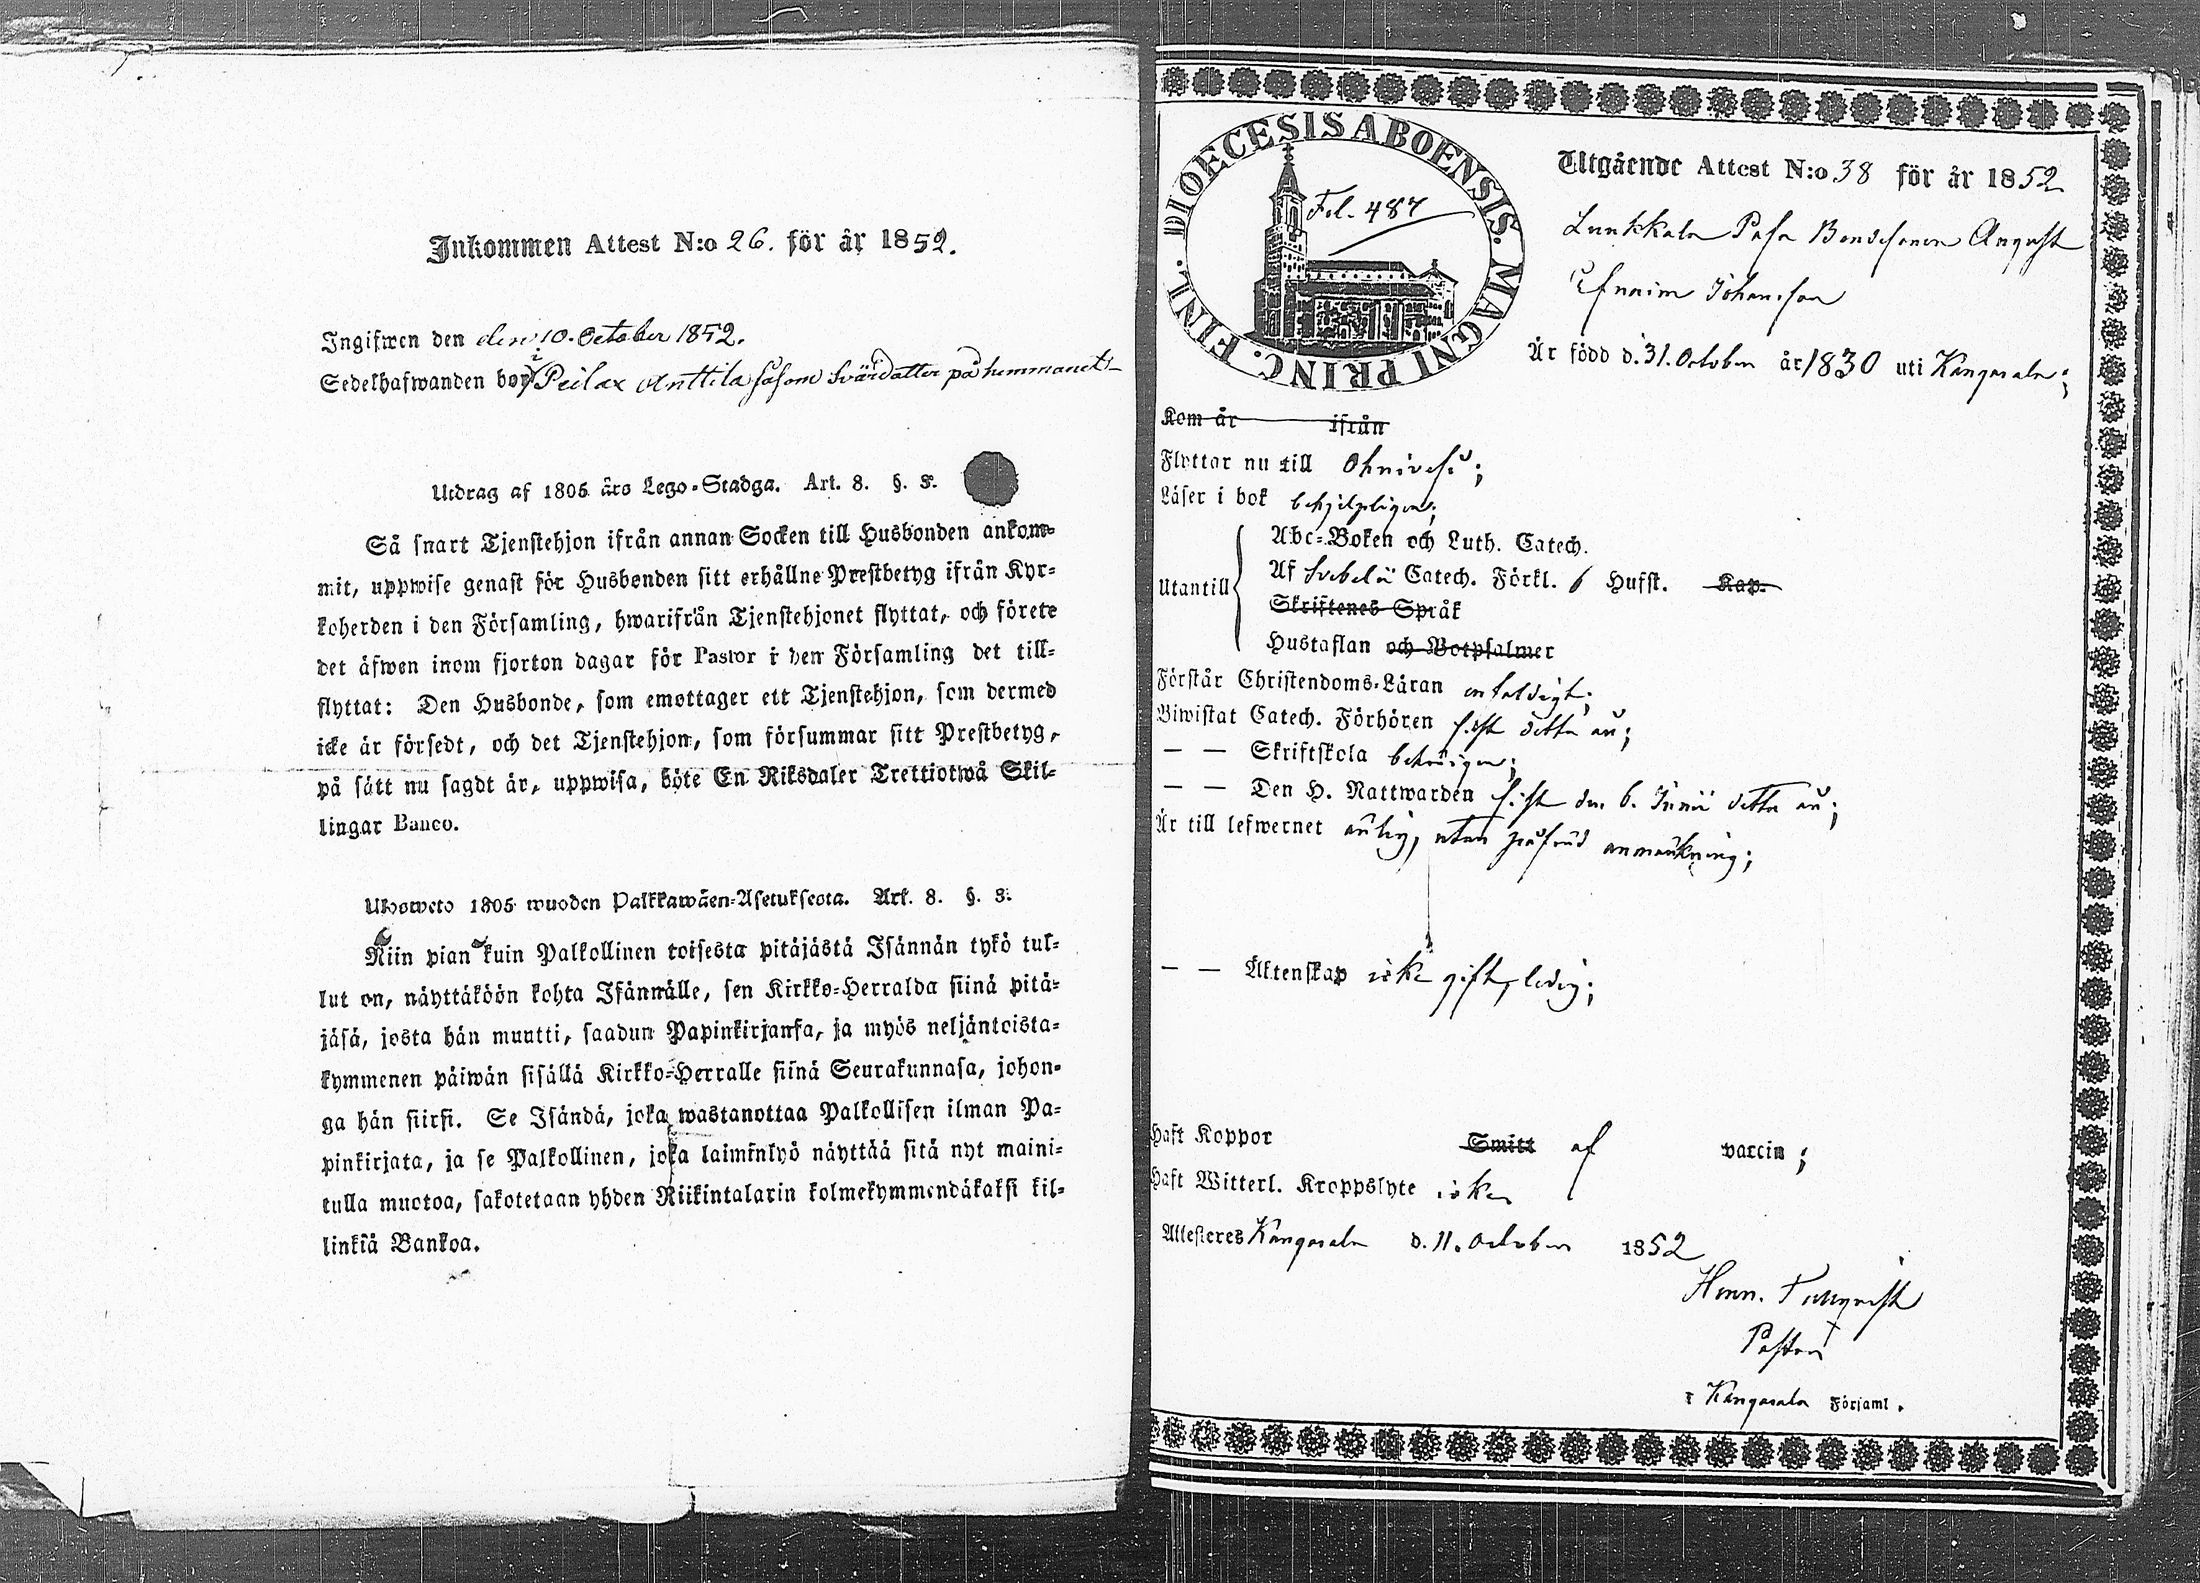 Inkommen Attest N:o 26. för år 1852.
Ingifwen den den 10. October 1852.
Sedelhafwanden bor i Peilax Anttila såsom Svärdotter på hemmanet
Utdrag af 1805 års Lego-Stadga. Art. 8. §. 3.
Så snart Tjenstehjon ifrån annan Socken till Husbonden ankom-
mit, uppwise genast för Husbonden sitt erhållne Prestbetyg ifrån Kyr-
koherden i den Församling, hwarifrån Tjenstehjonet flyttat, och förete
det äfwen inom fjorton dagar för Pastor i den Församling det till-
flyttat: Den Husbonde, som emottager ett Tjenstehjon, som dermed
icke är försedt, och det Tjenstehjon, som försummar sitt Prestbetyg,
på sätt nu sagdt är, uppwisa, böte En Riksdaler Trettiotwå Skil-
lingar Banco.
Ulosweto 1805 wuoden Palkkawäen-Asetuksesta. Art. 8. §. 3.
Niin pian kuin Palkollinen toisesta pitäjästä Isännän tykö tul-
lut on, näyttäköön kohta Isännälle, sen Kirkko-Herralda siinä pitä-
jäsä, josta hän muutti, saadun Papinkirjansa, ja myös neljäntoista-
kymmenen päiwän sisällä Kirkko-Herralle siinä Seurakunnasa, johon-
ga hän siirsi. Se Isändä, joka wastanottaa Palkollisen ilman Pa-
pinkirjata, ja se Palkollinen, joka laiminlyö näyttää sitä nyt maini-
tulla muotoa, sakotetaan yhden Riikintalarin kolmekymmendäkaksi kil-
linkiä Bankoa.
DIOECESIS ABOENSIS. MAGNI PRINC. FINL.
Fol. 487
Utgående Attest N:o 38 för år 1852
Lunkkala Pasa Bondsonen August
Efraim Johansson
Är född d. 31. October år 1830 uti Kangasala;
Kom år ifrån
Flyttar nu till Ohrivesi;
Läser i bok behjelpligen;
Utantill
Abc-Boken och Luth. Catech.
Af Svebelii Catech. Förkl. 6 Hufst. Kap.
Skriftenes Språk
Hustaflan och Botpsalmer
Förstår Christendoms-Läran enfaldigt;
Biwistat Catech. Förhören sist detta år;
— — Skriftskola behörigen;
— — Den H. Nattwarden sist den 6. Junii detta år;
Är till lefwernet ärlig, utan påförd anmärkning;
— — Äktenskap icke gift, ledig;
Haft Koppor Smitt af vaccin;
Haft Witterl. Kroppslyte icke
Attesteres Kangasala d. 11. October 1852
Henr.
Pastor
i Kangasala Församl.